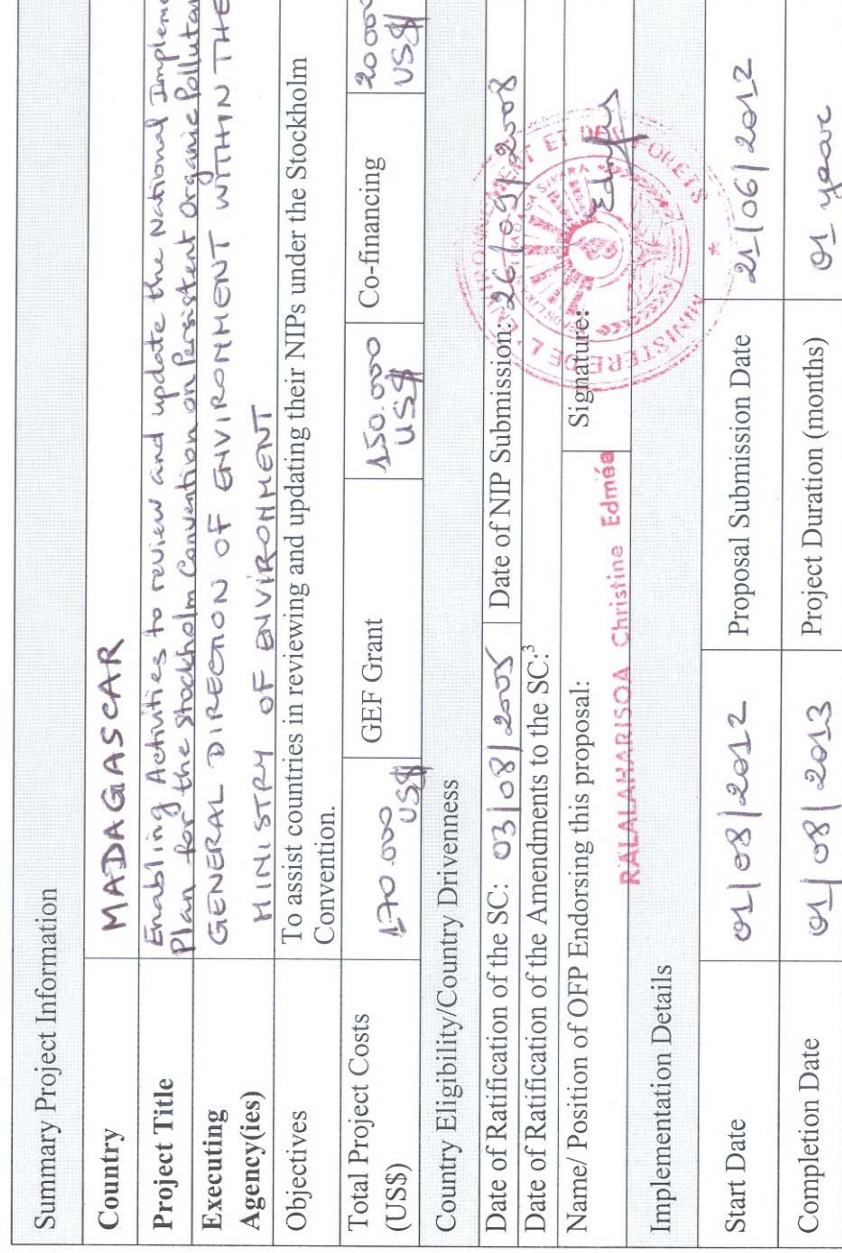 Summary Project Information
Country MADAGASCAR
Project Title Enabling Activities to review and update the National Impleme
Plan for the Stockholm Convention on Persistent Organic Pollutan
Executing GENERAL DIRECTION OF ENVIRONMENT WITHIN THE
Agency(ies) MINISTRY OF ENVIRONMENT
Objectives To assist countries in reviewing and updating their NIPs under the Stockholm
Convention.
Total Project Costs 170.000 GEF Grant 150.000 Co-financing 20000
(US$) US$ US$ US$
Country Eligibility/Country Drivenness
Date of Ratification of the SC: 03/08/2005 Date of NIP Submission: 26/09/2008
Date of Ratification of the Amendments to the SC:³
Name/ Position of OFP Endorsing this proposal: Signature: Edmée
RALALAHARISOA Christine Edmée
MINISTERE DE L'ENVIRONNEMENT ET DES FORETS
Implementation Details
Start Date 01/08/2012 Proposal Submission Date 21/06/2012
Completion Date 01/08/2013 Project Duration (months) 01 year